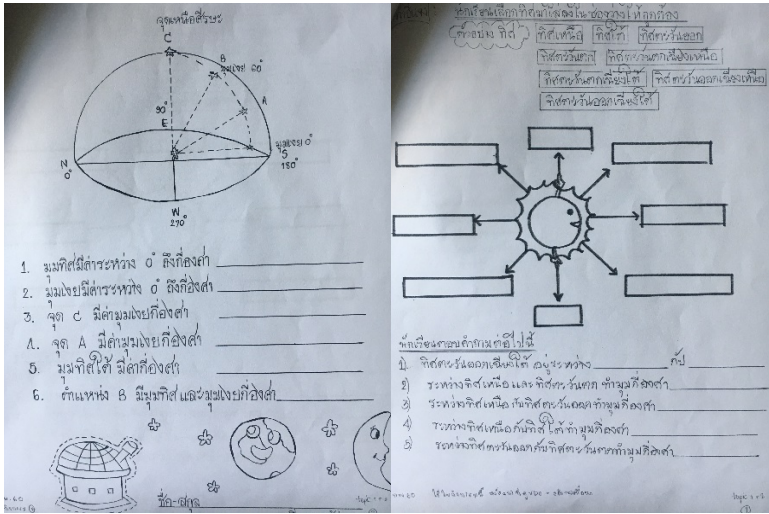 จุดเหนือศีรษะ
C
B
มุมเงย 60°
90°
A
E
มุมเงย 0°
N
0°
S
180°
W
270°
1. มุมทิศมีค่าระหว่าง 0° ถึงกี่องศา
2. มุมเงยมีค่าระหว่าง 0° ถึงกี่องศา
3. จุด C มีค่ามุมเงยกี่องศา
4. จุด A มีค่ามุมเงยกี่องศา
5. มุมทิศใต้ มีค่ากี่องศา
6. ตำแหน่ง B มีมุมทิศและมุมเงยกี่องศา
ชื่อ-สกุล
ตัวอย่าง ทิศ
ทิศเหนือ ทิศใต้ ทิศตะวันออก
ทิศตะวันตก ทิศตะวันตกเฉียงเหนือ
ทิศตะวันตกเฉียงใต้ ทิศตะวันออกเฉียงเหนือ
ทิศตะวันออกเฉียงใต้
นักเรียนตอบคำถามต่อไปนี้
1) ทิศตะวันออกเฉียงใต้ อยู่ระหว่าง กับ
2) ระหว่างทิศเหนือและทิศตะวันตก ทำมุมกี่องศา
3) ระหว่างทิศเหนือกับทิศตะวันออกทำมุมกี่องศา
4) ระหว่างทิศเหนือกับทิศใต้ทำมุมกี่องศา
5) ระหว่างทิศตะวันออกกับทิศตะวันตกทำมุมกี่องศา